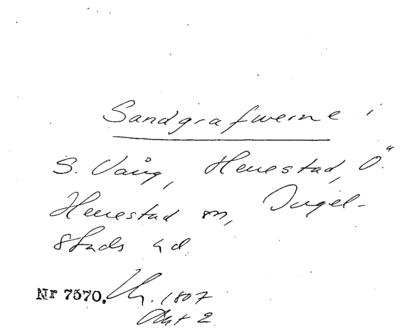 Sandgrafwerne i
S. Vång, Herrestad, Ö.
Herrestad sn, Ingel-
stads hd.
Nr 7570. 1807
Akt 2